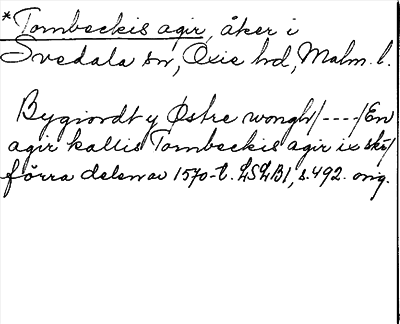 *Tombeckis agir, åker i
Svedala sn, Oxie hd, Malm. l.
Bygiordt y Østre wongh/----/En
agir kallis Tombeckis agir ix skr/
förra delen av 1570-t. LSLB1, s. 492. orig.